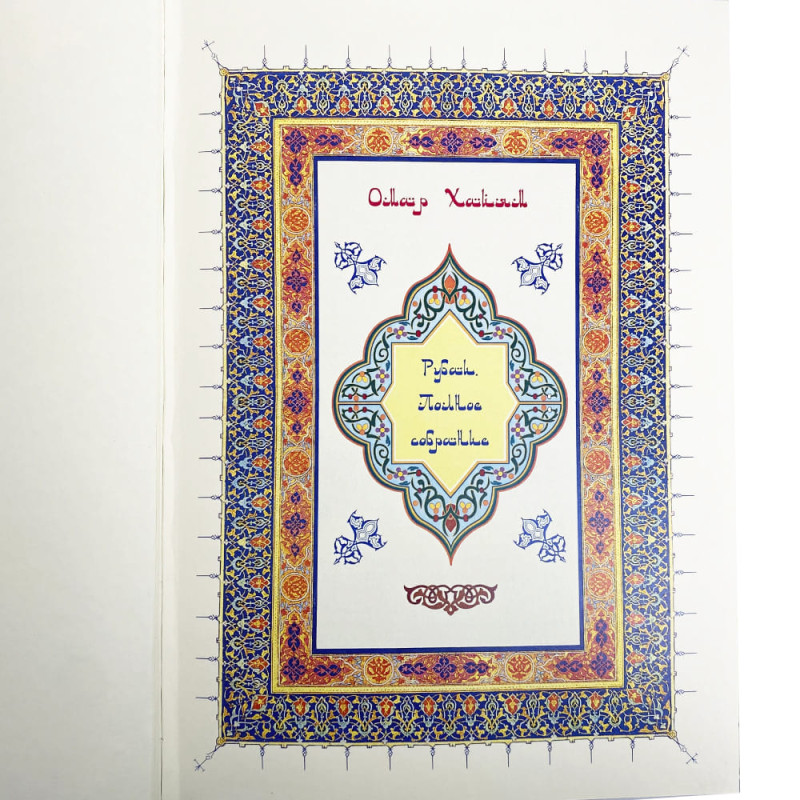 Омар Хайям
Рубаи.
Полное
собрание